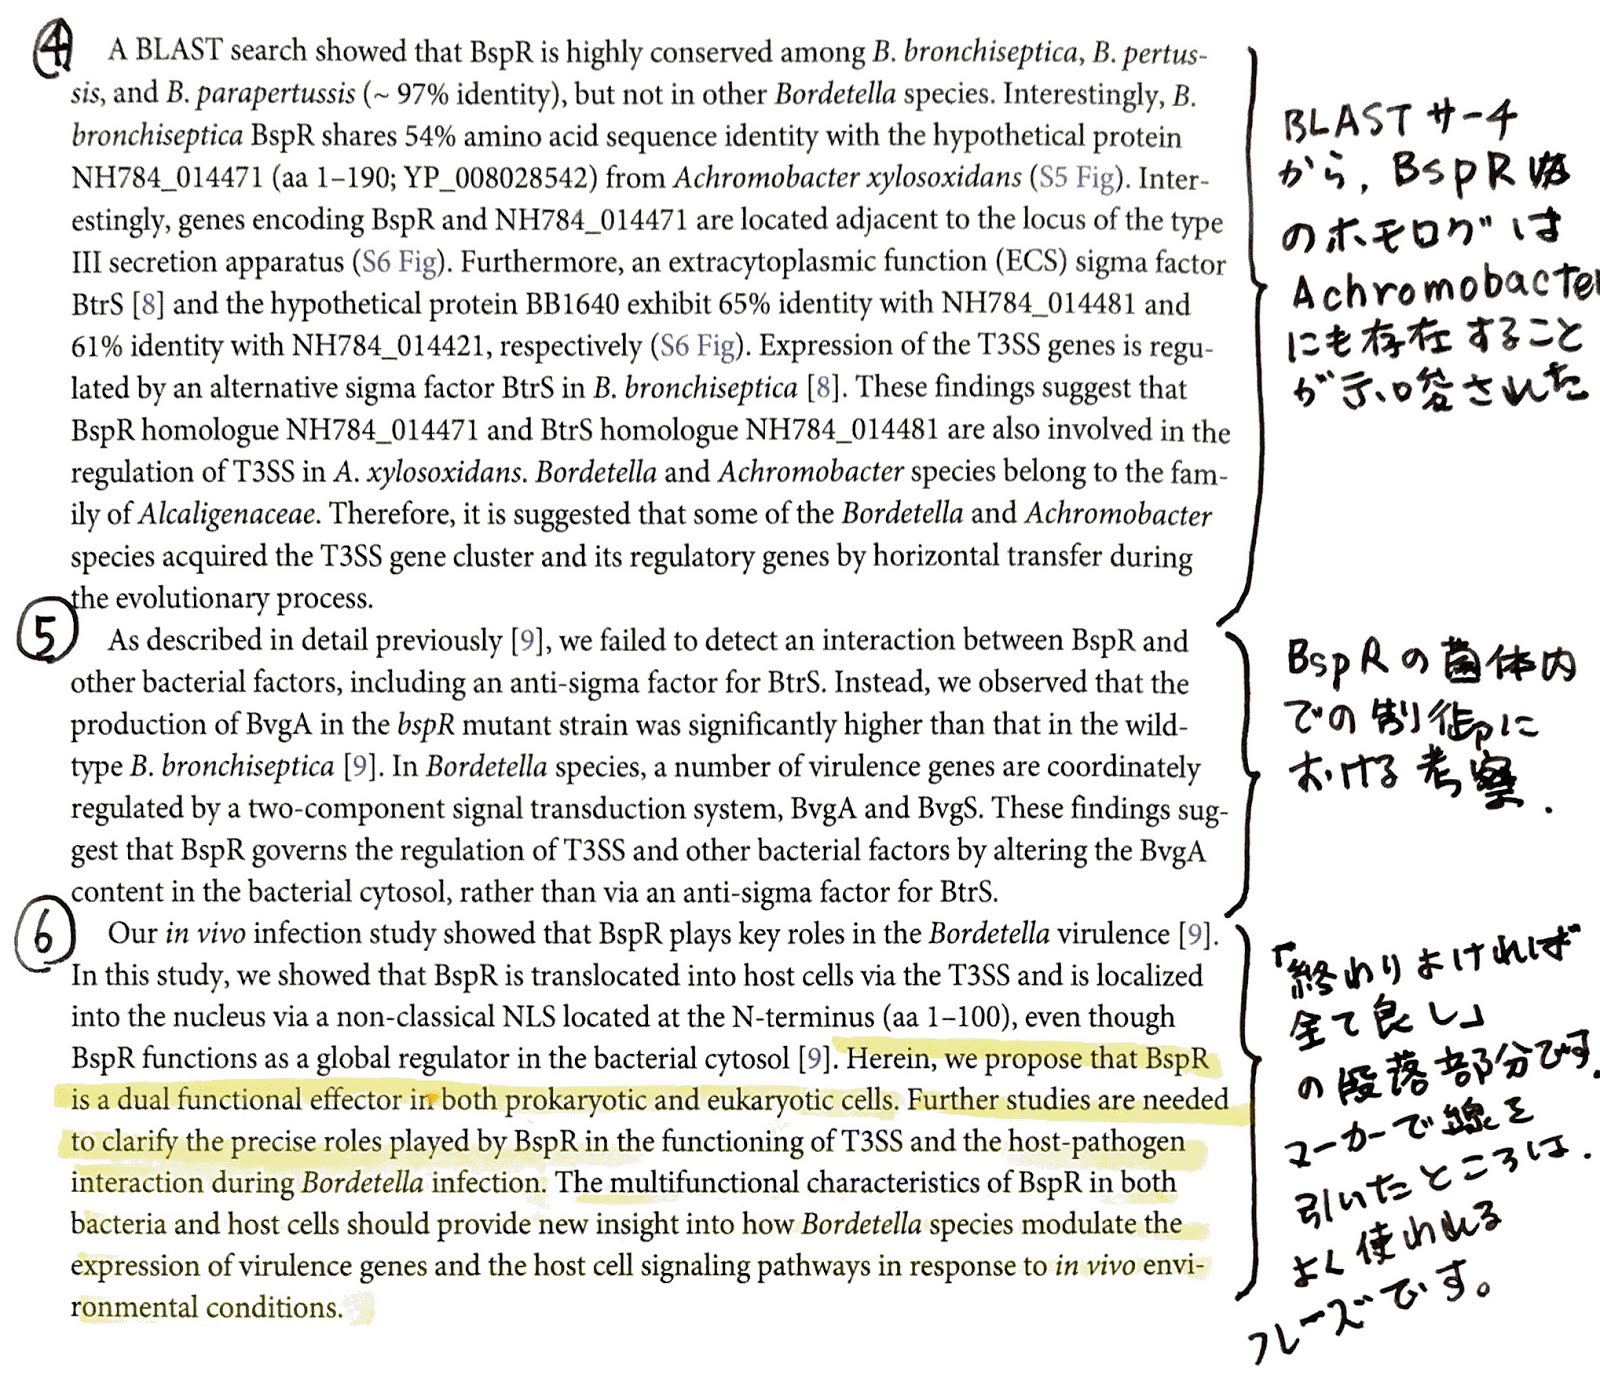 ④ A BLAST search showed that BspR is highly conserved among B. bronchiseptica, B. pertus-
sis, and B. parapertussis (~ 97% identity), but not in other Bordetella species. Interestingly, B.
bronchiseptica BspR shares 54% amino acid sequence identity with the hypothetical protein
NH784_014471 (aa 1–190; YP_008028542) from Achromobacter xylosoxidans (S5 Fig). Inter-
estingly, genes encoding BspR and NH784_014471 are located adjacent to the locus of the type
III secretion apparatus (S6 Fig). Furthermore, an extracytoplasmic function (ECS) sigma factor
BtrS [8] and the hypothetical protein BB1640 exhibit 65% identity with NH784_014481 and
61% identity with NH784_014421, respectively (S6 Fig). Expression of the T3SS genes is regu-
lated by an alternative sigma factor BtrS in B. bronchiseptica [8]. These findings suggest that
BspR homologue NH784_014471 and BtrS homologue NH784_014481 are also involved in the
regulation of T3SS in A. xylosoxidans. Bordetella and Achromobacter species belong to the fam-
ily of Alcaligenaceae. Therefore, it is suggested that some of the Bordetella and Achromobacter
species acquired the T3SS gene cluster and its regulatory genes by horizontal transfer during
the evolutionary process.
BLASTサーチ
から, BspR
のホモログは
Achromobacter
にも存在すること
が示唆された
⑤ As described in detail previously [9], we failed to detect an interaction between BspR and
other bacterial factors, including an anti-sigma factor for BtrS. Instead, we observed that the
production of BvgA in the bspR mutant strain was significantly higher than that in the wild-
type B. bronchiseptica [9]. In Bordetella species, a number of virulence genes are coordinately
regulated by a two-component signal transduction system, BvgA and BvgS. These findings sug-
gest that BspR governs the regulation of T3SS and other bacterial factors by altering the BvgA
content in the bacterial cytosol, rather than via an anti-sigma factor for BtrS.
BspRの菌体内
での制御に
おける考察.
⑥ Our in vivo infection study showed that BspR plays key roles in the Bordetella virulence [9].
In this study, we showed that BspR is translocated into host cells via the T3SS and is localized
into the nucleus via a non-classical NLS located at the N-terminus (aa 1–100), even though
BspR functions as a global regulator in the bacterial cytosol [9]. Herein, we propose that BspR
is a dual functional effector in both prokaryotic and eukaryotic cells. Further studies are needed
to clarify the precise roles played by BspR in the functioning of T3SS and the host-pathogen
interaction during Bordetella infection. The multifunctional characteristics of BspR in both
bacteria and host cells should provide new insight into how Bordetella species modulate the
expression of virulence genes and the host cell signaling pathways in response to in vivo envi-
ronmental conditions.
「終わりよければ
全て良し」
の段落部分です.
マーカーで線を
引いたところは.
よく使われる
フレーズです。